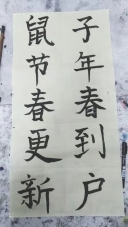 子年春到户
鼠节春更新